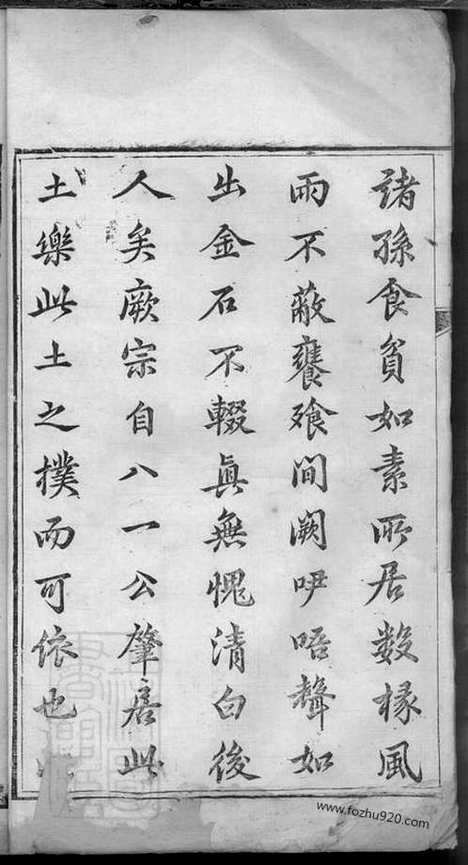 諸孫食貧如素所居数椽風
雨不蔽饔飱間闕吚唔聲如
出金石不輟眞無愧清白後
人矣厥宗自八一公肇居此
土樂此土之樸而可依也
www.fozhu920.com